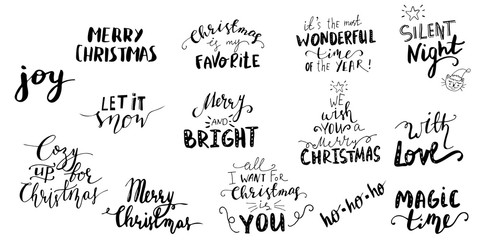 MERRY
CHRISTMAS
Christmas
is my
FAVORITE
it's the most
WONDERFUL
time
OF THE YEAR!
SILENT
Night
joy
LET IT
snow
Merry
AND
BRIGHT
WE
wish
YOU a
Merry
CHRISTMAS
with
Love
Cozy
up for
Christmas
Merry
Christmas
all
I WANT FOR
Christmas
is
YOU
ho-ho-ho
MAGIC
time